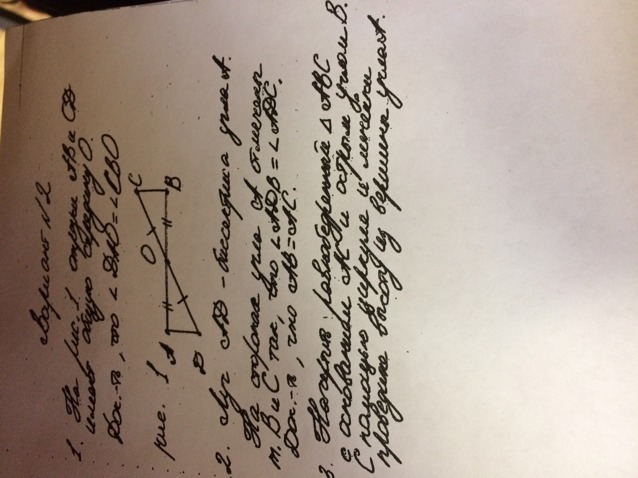 Вариант №2
1. На рис. 1 отрезки АВ и CD
имеют общую середину О.
Док-ть, что ∠ DAO = ∠ CBO
рис. 1
A
O
C
D
B
2. Луч AD - биссектриса угла А.
На сторонах угла А отмечены
т. В и С так, что ∠ ADB = ∠ ADC.
Док-ть, что AB = AC.
3. Начерти равнобедренный Δ ABC
с основанием AC и острым углом В.
С помощью циркуля и линейки
проведите высоту из вершины угла А.